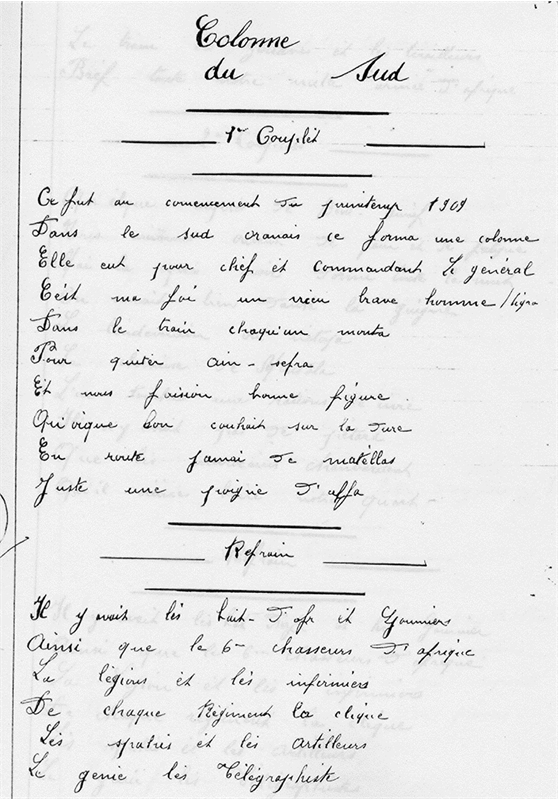 Colonne
du Sud
1er Couplèt
Ce fut au comencement du printemp 1909
Dans le sud oranais ce forma une colonne
Elle eut pour chéf èt commandant Le général
C'ést ma foi un vieu brave homme
Dans le train chaqu'un monta
Pour quiter ain-sefra
Et nous faision bonne figure
Qu'oique l'on couhait sur la dure
En route jamai de matéllas
Juste une poigné d'alfa
Refrain
Il y avait lés bat-d'afr èt Goumiers
Ainsi que le 6e chasseurs d'afrique
La légions èt lés infirmiers
De chaque Régiment la clique
Lés spahis èt lés artilleurs
Le genie lés Télégraphiste